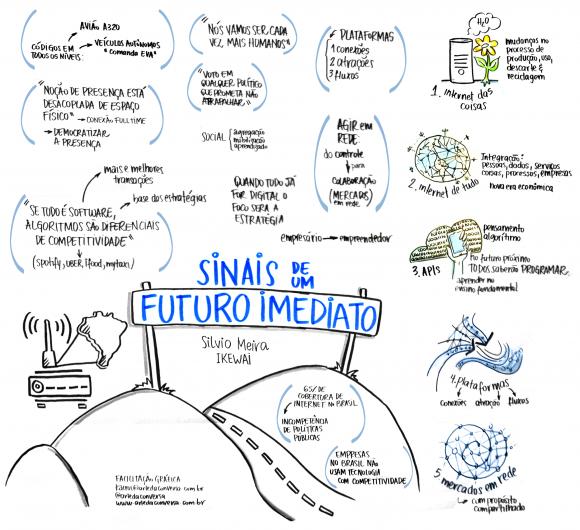 AVIÃO A320
CÓDIGOS EM
TODOS OS NÍVEIS:
VEÍCULOS AUTÔNOMOS
"comando EVA"
"NÓS VAMOS SER, CADA
VEZ, MAIS HUMANOS"
PLATAFORMAS
1 conexões
2 atrações
3 fluxos
H₂O
mudanças no
processo de
produção, uso,
descarte e
reciclagem
1. internet das
coisas
"NOÇÃO DE PRESENÇA ESTÁ
DESACOPLADA DE ESPAÇO
FÍSICO"
CONEXÃO FULL TIME
DEMOCRATIZAR
A PRESENÇA
"VOTO EM
QUALQUER POLÍTICO
QUE PROMETA NÃO
ATRAPALHAR."
SOCIAL
agregação
mobilização
aprendizado
AGIR em
REDE:
do controle
para
COLABORAÇÃO
(MERCADOS)
em rede.
Integração:
pessoas, dados, serviços
coisas, processos, empresas
nova era econômica
2. internet de tudo
mais e melhores
transações
base das estratégias
"SE TUDO É SOFTWARE,
ALGORITMOS SÃO DIFERENCIAIS
DE COMPETITIVIDADE"
(spotify, UBER, ifood, mytaxi)
QUANDO TUDO JÁ
FOR DIGITAL O
FOCO SERÁ A
ESTRATÉGIA
empresário → empreendedor
pensamento
algorítmo
no futuro próximo
TODOS saberão PROGRAMAR.
aprender no
ensino fundamental
3. APIs
SINAIS DE UM
FUTURO IMEDIATO
Silvio Meira
IKEWAI
65% DE
COBERTURA DE
INTERNET NO BRASIL
INCOMPETÊNCIA
DE POLÍTICAS
PÚBLICAS
EMPRESAS
NO BRASIL NÃO
USAM TECNOLOGIA
COM COMPETITIVIDADE
4. plataformas
conexões atração fluxos
5. mercados em rede
com propósito
compartilhado
FACILITAÇÃO GRÁFICA
@artedaconversa
www.artedaconversa.com.br